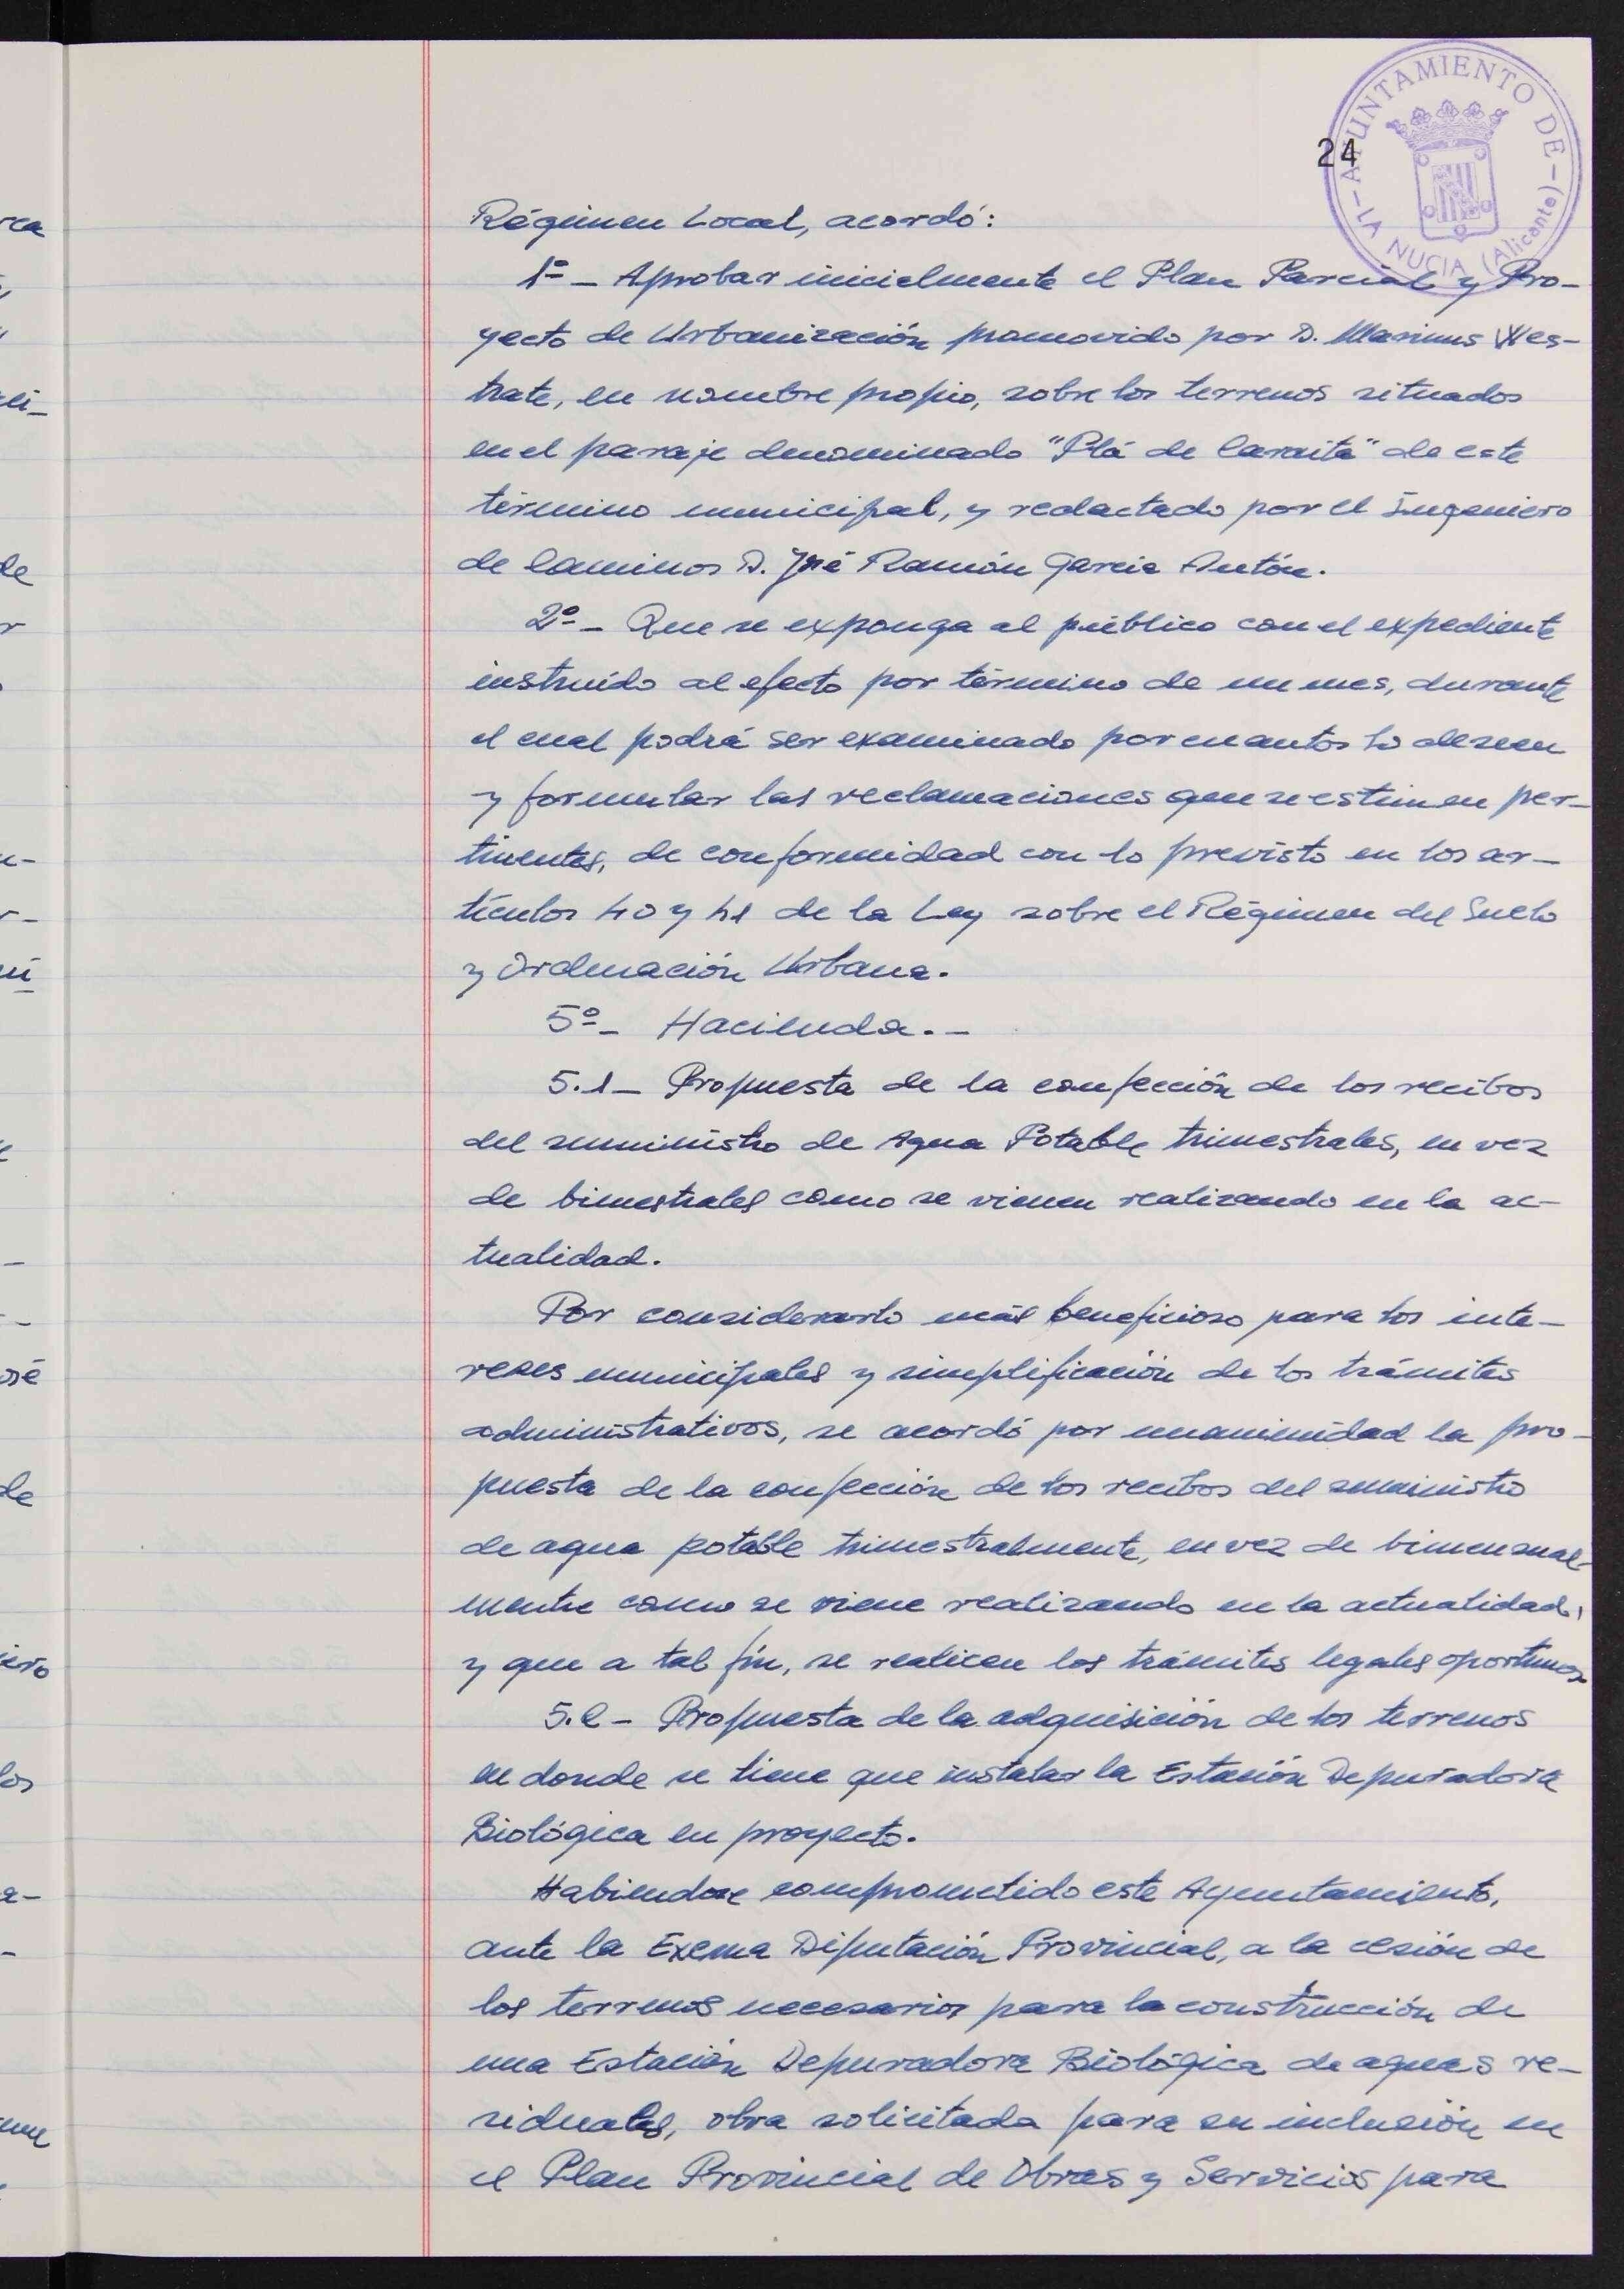 AYUNTAMIENTO DE
LA NUCIA (Alicante)
24
Régimen Local, acordó:
1º - Aprobar inicialmente el Plan Parcial y Pro-
yecto de Urbanización promovido por D. Marinus Wes-
trate, en nombre propio, sobre los terrenos situados
en el paraje denominado "Plá de Caraita" de este
término municipal, y redactado por el Ingeniero
de Caminos D. José Ramón García Antón.
2º - Que se exponga al público con el expediente
instruído al efecto por término de un mes, durante
el cual podrá ser examinado por cuantos lo deseen
y formular las reclamaciones que se estimen per-
tinentes, de conformidad con lo previsto en los ar-
tículos 40 y 41 de la Ley sobre el Régimen del Suelo
y Ordenación Urbana.
5º - Hacienda.-
5.1- Propuesta de la confección de los recibos
del suministro de Agua Potable trimestrales, en vez
de bimestrales como se vienen realizando en la ac-
tualidad.
Por considerarlo más beneficioso para los inte-
reses municipales y simplificación de los trámites
administrativos, se acordó por unanimidad la pro-
puesta de la confección de los recibos del suministro
de agua potable trimestralmente, en vez de bimensual-
mente como se viene realizando en la actualidad,
y que a tal fín, se realicen los trámites legales oportunos
5.2- Propuesta de la adquisición de los terrenos
en donde se tiene que instalar la Estación Depuradora
Biológica en proyecto.
Habiendose comprometido este Ayuntamiento,
ante la Excma Diputación Provincial, a la cesión de
los terrenos necesarios para la construcción de
una Estación Depuradora Biológica de aguas re-
siduales, obra solicitada para su inclusión en
el Plan Provincial de Obras y Servicios para